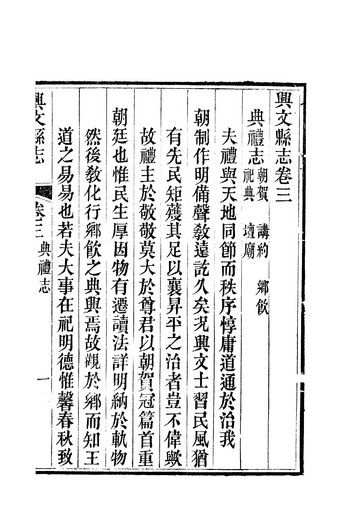 興文縣志卷三
典禮志 朝賀 講約 鄉飲
祀典 壇廟
夫禮與天地同節而秩序惇庸道通於治我
朝制作明備聲敎遠訖久矣况興文士習民風猶
有先民矩矱其足以襄昇平之治者豈不偉歟
故禮主於敬敬莫大於尊君以朝賀冠篇首重
朝廷也惟民生厚因物有遷讀法詳明納於軌物
然後敎化行鄉飲之典興焉故觀於鄉而知王
道之易易也若夫大事在祀明德惟馨春秋致
興文縣志 卷三 典禮志 一